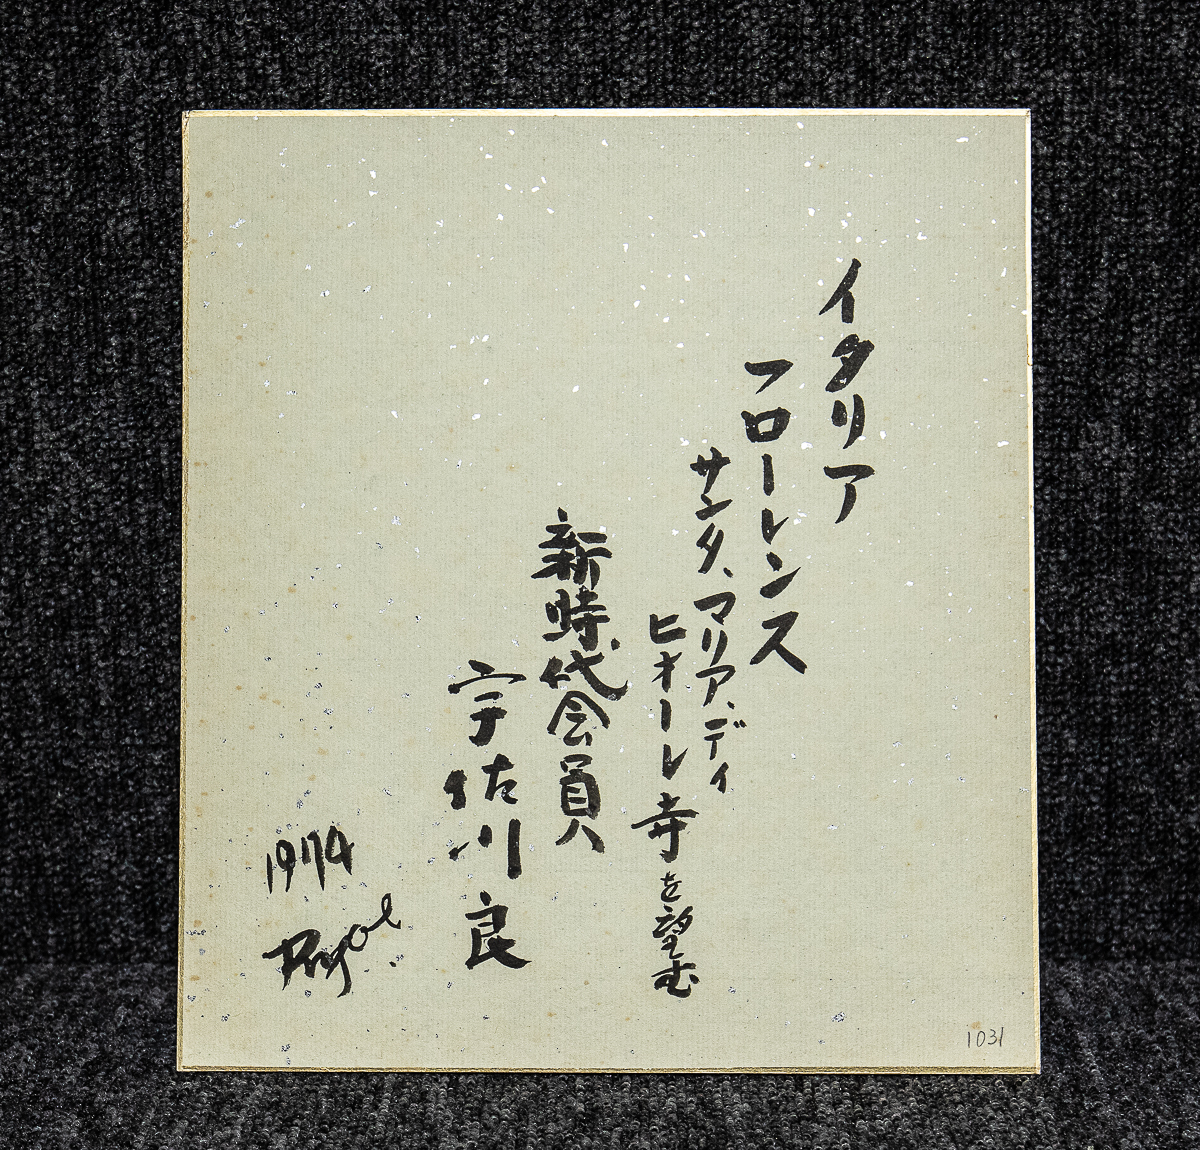 イタリア
フローレンス
サンタ、マリア、ディ
ヒオーレ寺を望む
新時代会員
宇佐川良
1974
1031